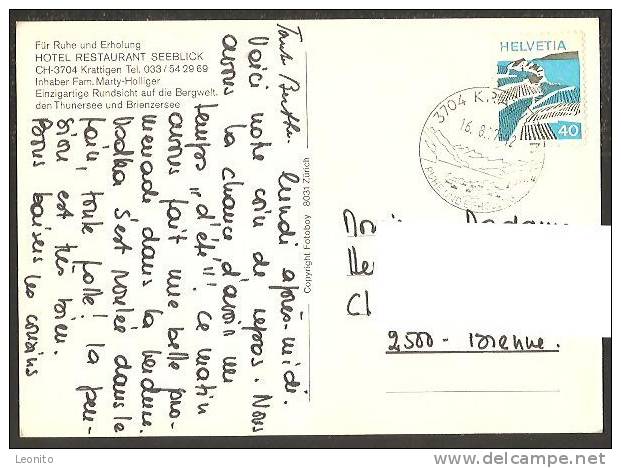 Für Ruhe und Erholung
HOTEL RESTAURANT SEEBLICK
CH-3704 Krattigen Tel. 033/54 29 69
Inhaber Fam. Marty-Holliger
Einzigartige Rundsicht auf die Bergwelt,
den Thunersee und Brienzersee
lundi après-midi.
Voici notre coin de repos. Nous
avons la chance d'avoir un
temps "d'été"! Ce matin
avons fait une belle pro-
menade dans la verdure.
Vodka s'est roulée dans le
foin, toute folle! la pen-
sion est très bien.
Bons baisers les cousins
Copyright Fotoboy 8031 Zürich
HELVETIA
40
3704 K
16.8.
2500 - Bienne.
Leonito
www.delcampe.net